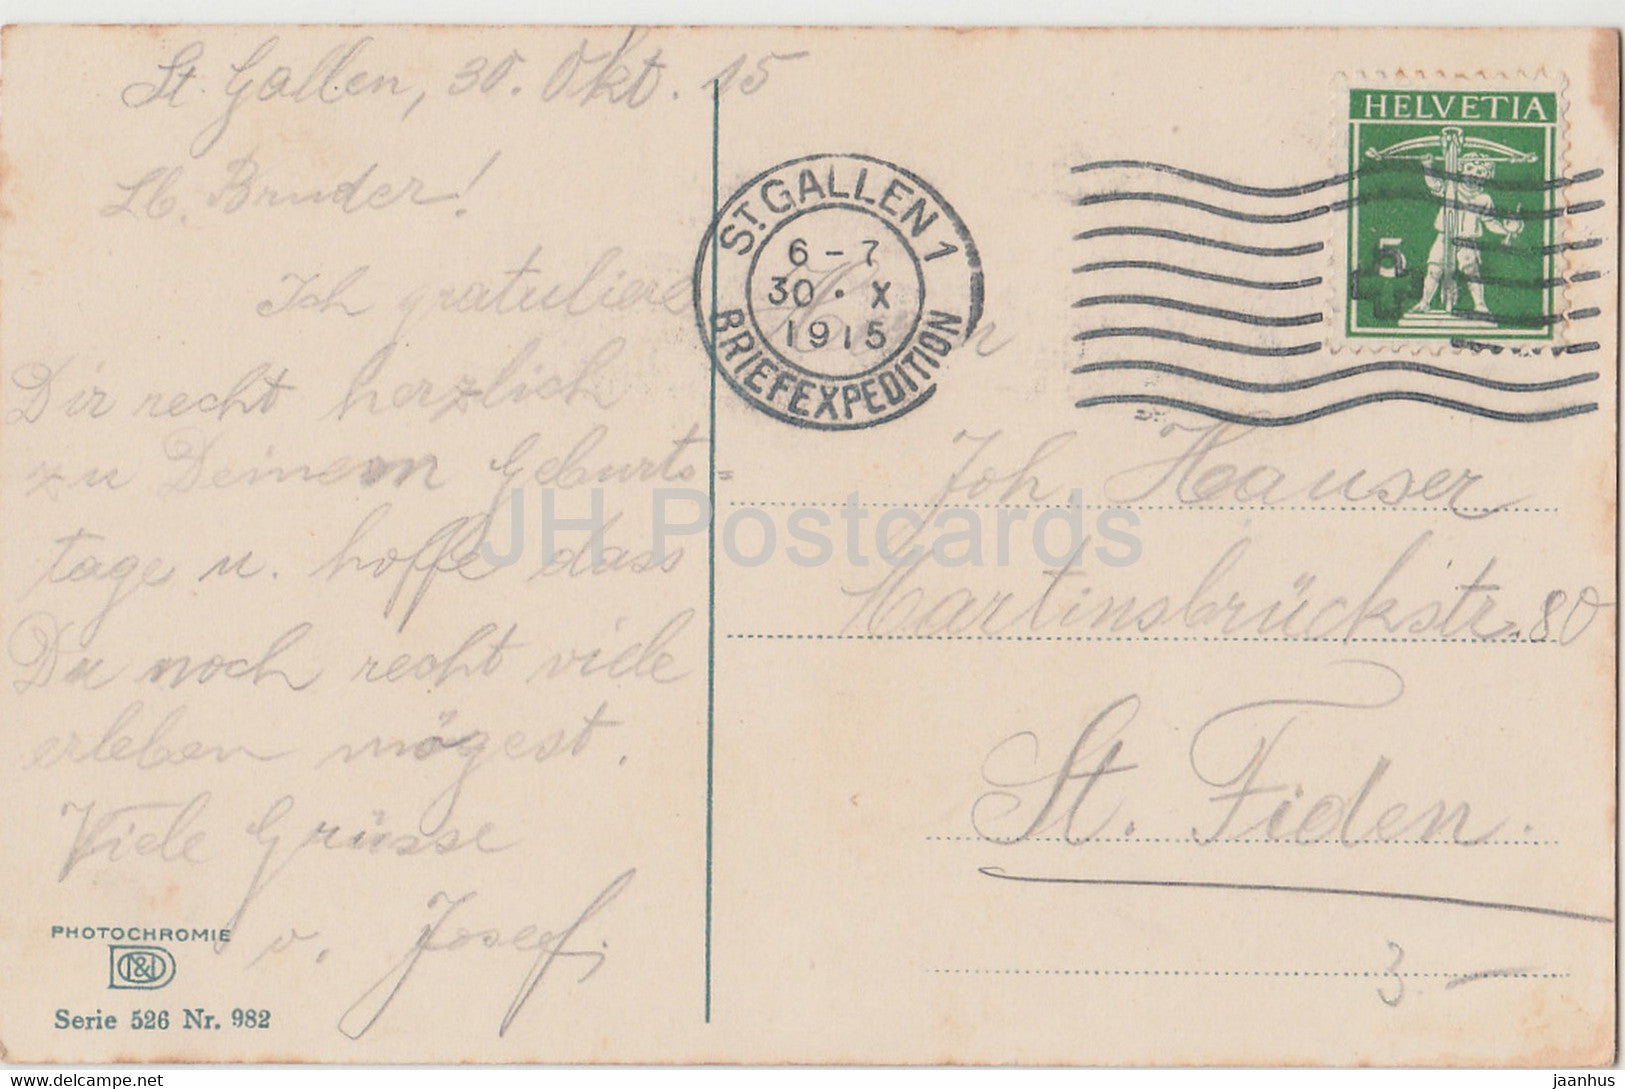 St. Gallen, 30. Okt. 15
Lb. Bruder!
Ich gratuliere
Dir recht herzlich
zu Deinem Geburts=
tage u. hoffe dass
Du noch recht viele
erleben mögest.
Viele Grüsse
v. Josef.
PHOTOCHROMIE
Serie 526 Nr. 982
ST GALLEN 1
6-7
30. X
1915
BRIEFEXPEDITION
HELVETIA
5
Herrn
Joh. Hauser
Martinsbrückstr. 80
St. Fiden.
3.—
JH Postcards
jaanhus
www.delcampe.net